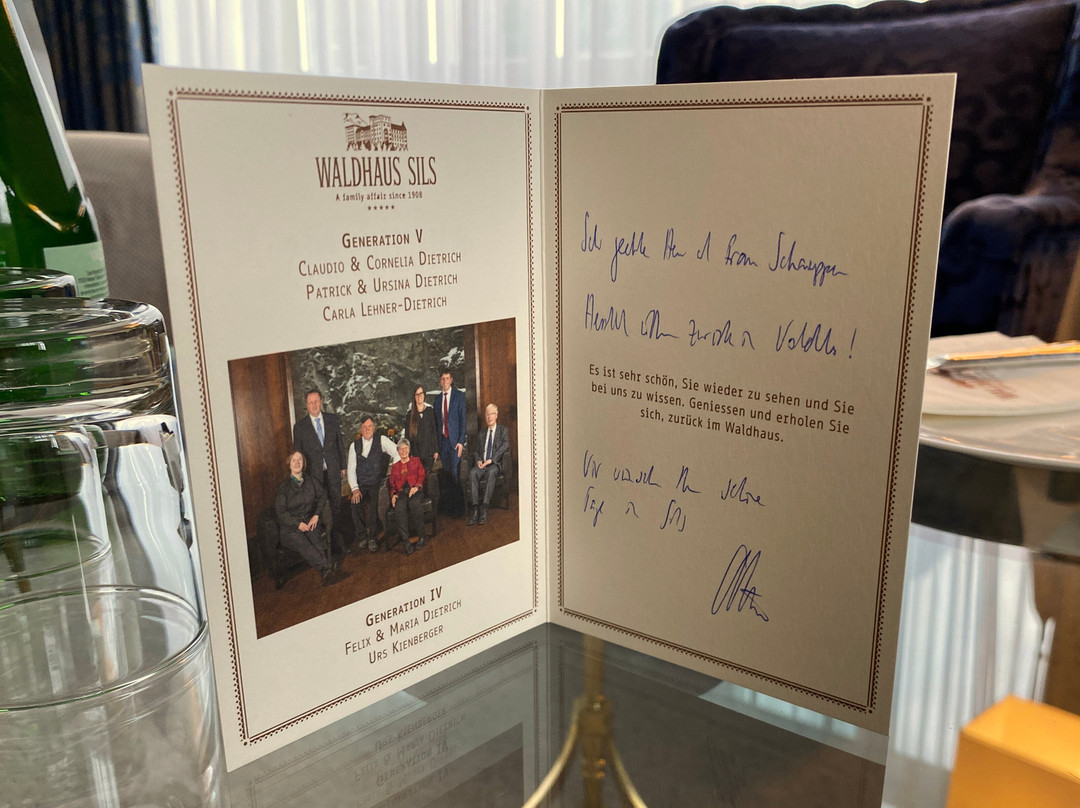 WALDHAUS SILS
A family affair since 1908
GENERATION V
CLAUDIO & CORNELIA DIETRICH
PATRICK & URSINA DIETRICH
CARLA LEHNER-DIETRICH
GENERATION IV
FELIX & MARIA DIETRICH
URS KIENBERGER
Sehr geehrte Herr und Frau
Herzlich willkommen zurück im Waldhaus!
Es ist sehr schön, Sie wieder zu sehen und Sie
bei uns zu wissen. Geniessen und erholen Sie
sich, zurück im Waldhaus.
Wir wünschen Ihnen schöne
Tage in Sils